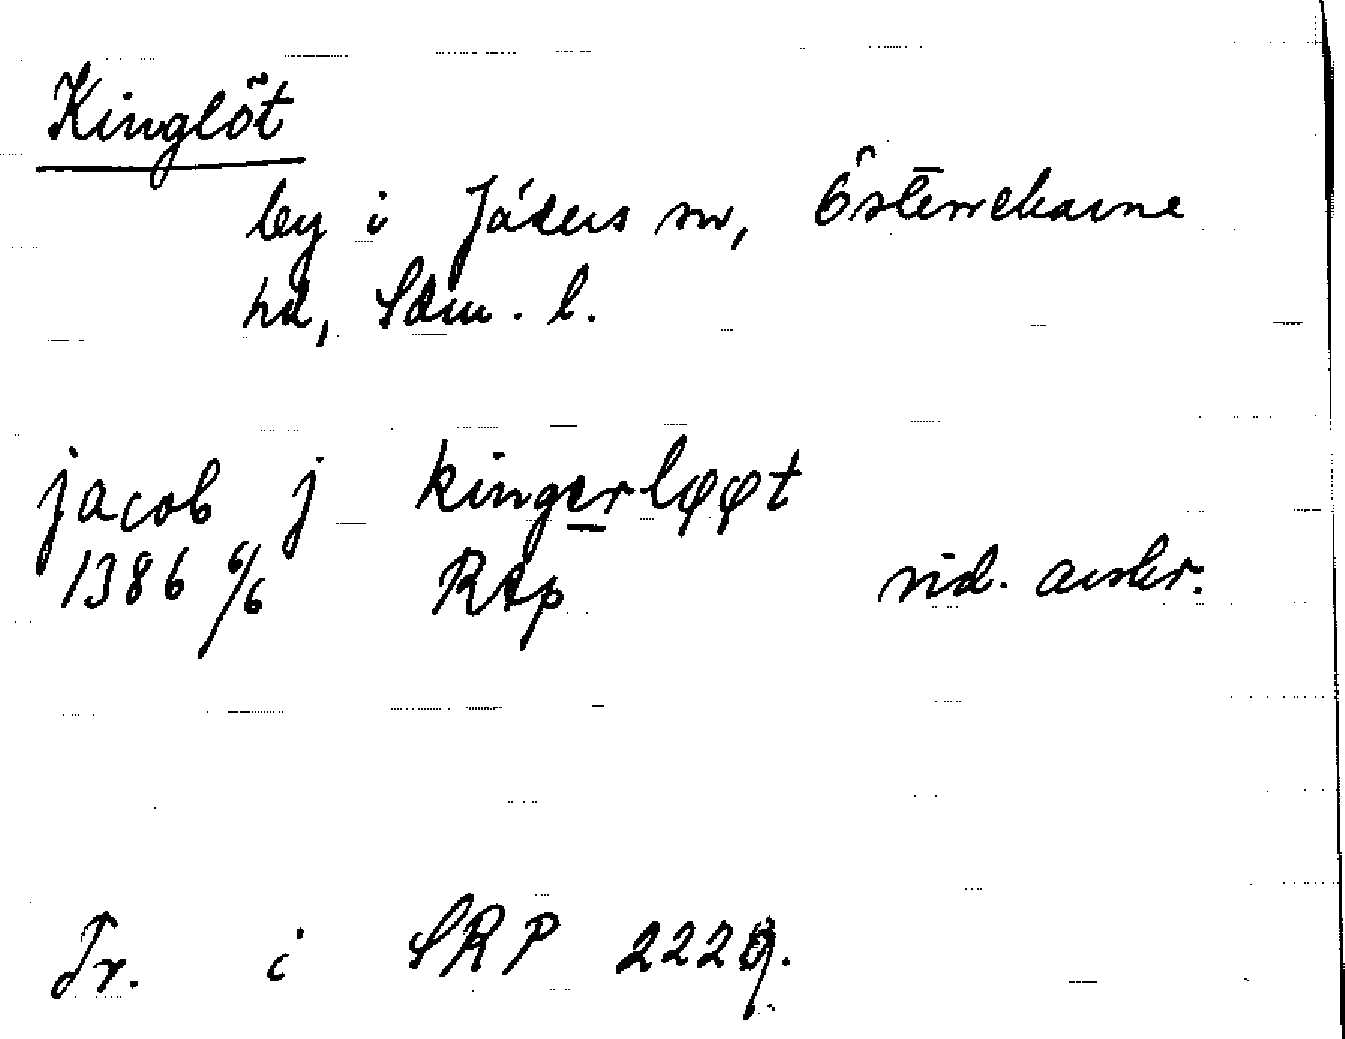 Kinglöt
by i Jäders sn, Österrekarne
hd, Sdm. l.
jacob j kingerløøt
1386 6/6 RAp vid. avskr.
Tr. i SRP 2229.